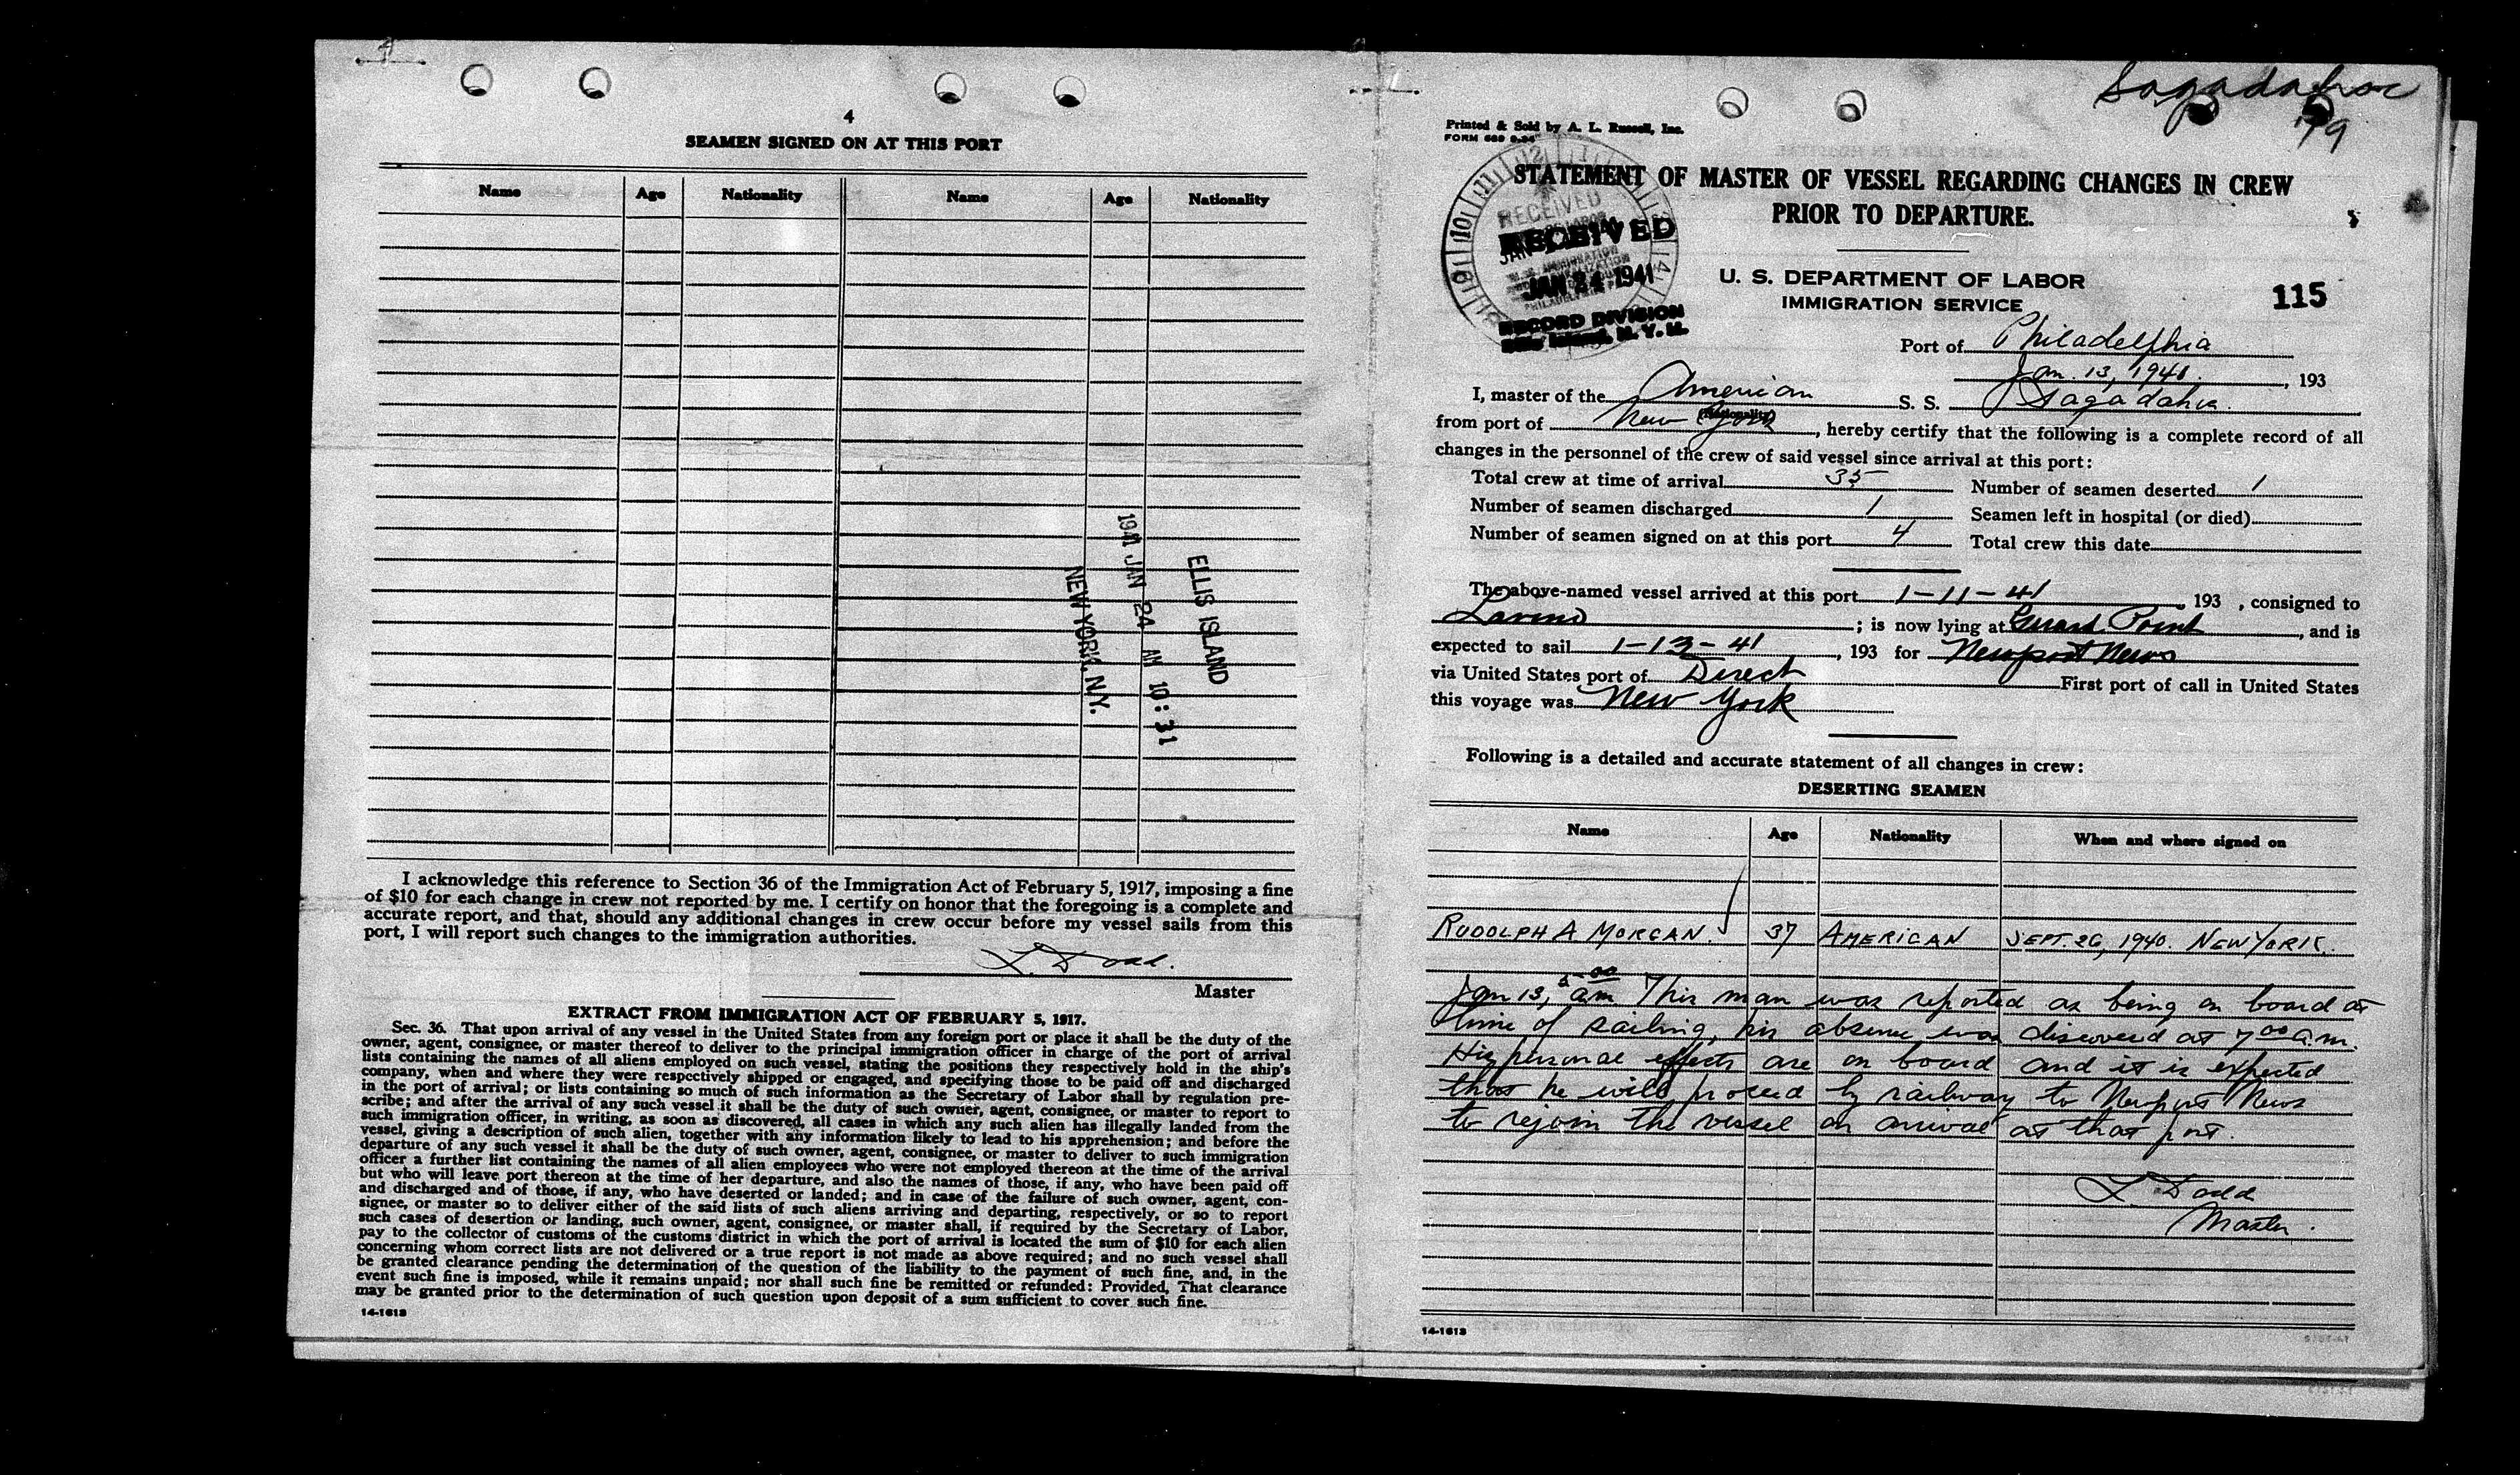 4
SEAMEN SIGNED ON AT THIS PORT
Name Age Nationality Name Age Nationality
ELLIS ISLAND
1941 JAN 24 AM 10:31
NEW YORK, N.Y.
I acknowledge this reference to Section 36 of the Immigration Act of February 5, 1917, imposing a fine
of $10 for each change in crew not reported by me. I certify on honor that the foregoing is a complete and
accurate report, and that, should any additional changes in crew occur before my vessel sails from this
port, I will report such changes to the immigration authorities.
L. Dodd.
Master
EXTRACT FROM IMMIGRATION ACT OF FEBRUARY 5, 1917.
Sec. 36. That upon arrival of any vessel in the United States from any foreign port or place it shall be the duty of the
owner, agent, consignee, or master thereof to deliver to the principal immigration officer in charge of the port of arrival
lists containing the names of all aliens employed on such vessel, stating the positions they respectively hold in the ship's
company, when and where they were respectively shipped or engaged, and specifying those to be paid off and discharged
in the port of arrival; or lists containing so much of such information as the Secretary of Labor shall by regulation pre-
scribe; and after the arrival of any such vessel it shall be the duty of such owner, agent, consignee, or master to report to
such immigration officer, in writing, as soon as discovered, all cases in which any such alien has illegally landed from the
vessel, giving a description of such alien, together with any information likely to lead to his apprehension; and before the
departure of any such vessel it shall be the duty of such owner, agent, consignee, or master to deliver to such immigration
officer a further list containing the names of all alien employees who were not employed thereon at the time of the arrival
but who will leave port thereon at the time of her departure, and also the names of those, if any, who have been paid off
and discharged and of those, if any, who have deserted or landed; and in case of the failure of such owner, agent, con-
signee, or master so to deliver either of the said lists of such aliens arriving and departing, respectively, or so to report
such cases of desertion or landing, such owner, agent, consignee, or master shall, if required by the Secretary of Labor,
pay to the collector of customs of the customs district in which the port of arrival is located the sum of $10 for each alien
concerning whom correct lists are not delivered or a true report is not made as above required; and no such vessel shall
be granted clearance pending the determination of the question of the liability to the payment of such fine, and, in the
event such fine is imposed, while it remains unpaid; nor shall such fine be remitted or refunded: Provided, That clearance
may be granted prior to the determination of such question upon deposit of a sum sufficient to cover such fine.
14-1613
Sagadahoc
'79
Printed & Sold by A. L. Russell, Inc.
FORM 689
STATEMENT OF MASTER OF VESSEL REGARDING CHANGES IN CREW
PRIOR TO DEPARTURE.
RECEIVED
RECEIVED
JAN 24 1941
RECORD DIVISION
U. S. DEPARTMENT OF LABOR
IMMIGRATION SERVICE
115
Port of Philadelphia
Jan. 13, 1941., 193
I, master of the American S. S. Sagadahoc.
(Nationality)
from port of New York, hereby certify that the following is a complete record of all
changes in the personnel of the crew of said vessel since arrival at this port:
Total crew at time of arrival 35 Number of seamen deserted 1
Number of seamen discharged 1 Seamen left in hospital (or died)
Number of seamen signed on at this port 4 Total crew this date
The above-named vessel arrived at this port 1-11-41, 193 , consigned to
Lavino; is now lying at Girard Point, and is
expected to sail 1-13-41, 193 for Newport News
via United States port of Direct First port of call in United States
this voyage was New York
Following is a detailed and accurate statement of all changes in crew:
DESERTING SEAMEN
Name Age Nationality When and where signed on
RUDOLPH A MORGAN. 37 AMERICAN SEPT. 26, 1940. NEW YORK.
Jan 13, 5 00 am This man was reported as being on board at
time of sailing, his absence was discovered at 7 00 a.m.
His personal effects are on board and it is expected
that he will proceed by railway to Newport News
to rejoin the vessel on arrival at that port.
L. Dodd
Master.
14-1613